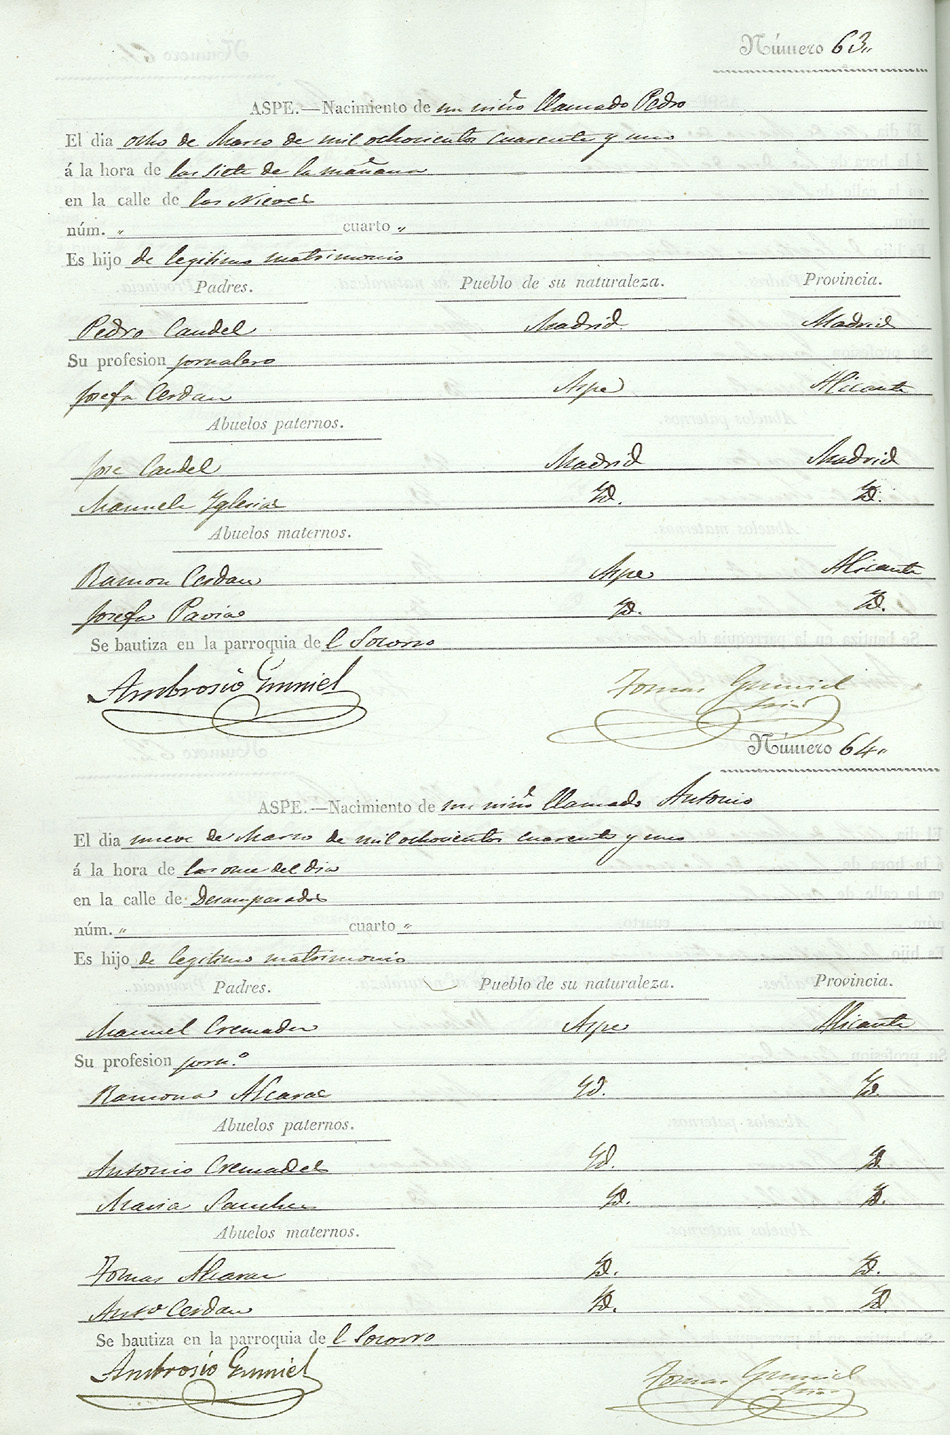 Número 63.
ASPE.—Nacimiento de un niño llamado Pedro
El dia ocho de Marzo de mil ochocientos cuarenta y uno
á la hora de las siete de la mañana
en la calle de las Nieves
núm. „ cuarto „
Es hijo de legitimo matrimonio
Padres. Pueblo de su naturaleza. Provincia.
Pedro Candel Madrid Madrid
Su profesion jornalero
Josefa Cerdan Aspe Alicante
Abuelos paternos.
Jose Candel Madrid Madrid
Manuela Yglesias Yd. Yd.
Abuelos maternos.
Ramon Cerdan Aspe Alicante
Josefa Pavia Yd. Yd.
Se bautiza en la parroquia de l Socorro
Ambrosio Tomas
Número 64.
ASPE.—Nacimiento de un niño llamado Antonio
El dia nueve de Marzo de mil ochocientos cuarenta y uno
á la hora de las once del dia
en la calle de Desamparados
núm. „ cuarto „
Es hijo de legitimo matrimonio
Padres. Pueblo de su naturaleza. Provincia.
Manuel Cremades Aspe Alicante
Su profesion jorn.º
Ramona Alcaraz Yd. Yd.
Abuelos paternos.
Antonio Cremades Yd. Yd.
Maria Sanchez Yd. Yd.
Abuelos maternos.
Tomas Alcaraz Yd. Yd.
Ant.ª Cerdan Yd. Yd.
Se bautiza en la parroquia de l Socorro
Ambrosio Tomas